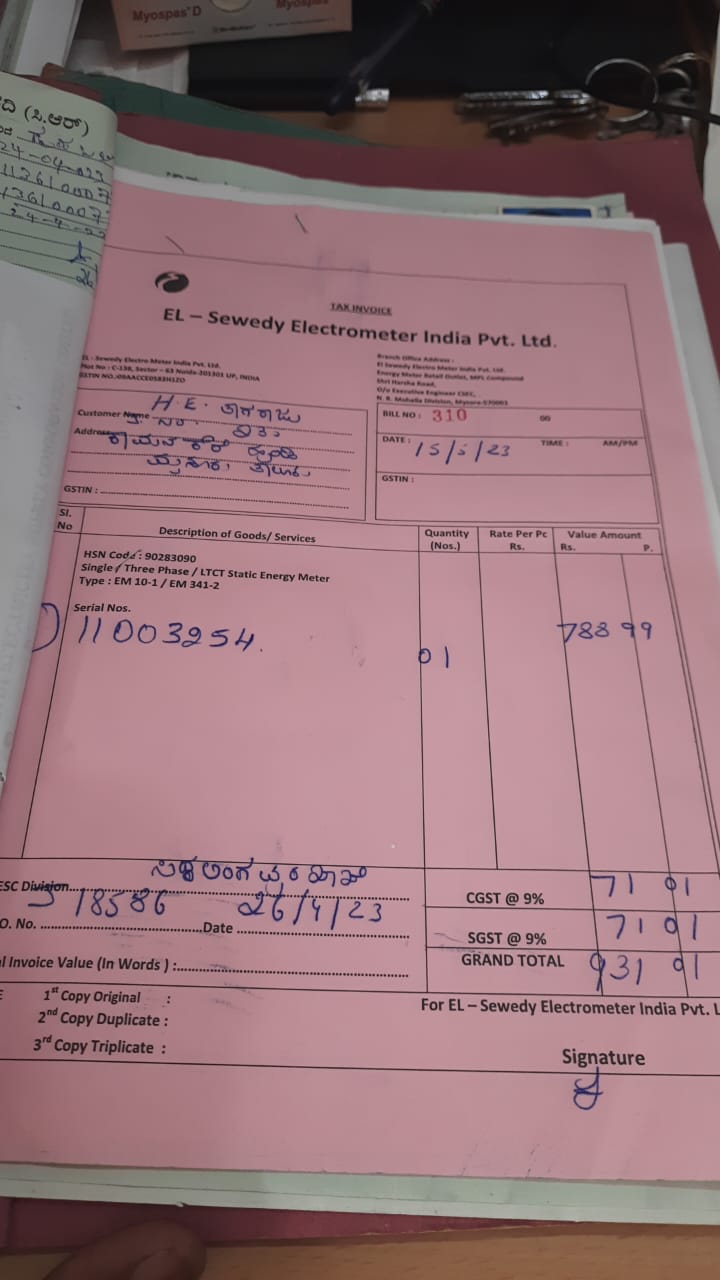 Myospas D
Myospas
ದಿ (ಸಿ.ಆರ್)
24-04-023
TAX INVOICE
EL – Sewedy Electrometer India Pvt. Ltd.
EL - Sewedy Electro Meter India Pvt. Ltd.
Plot No : C-138, Sector – 63 Noida-201301 UP, INDIA
Branch Office Address :
El Sewedy Electro Meter India Pvt. Ltd.
Energy Meter Retail Outlet, MPL Compound
Shri Harsha Road,
O/o Executive Engineer CSEC,
N. R. Mohalla Division, Mysore-570001
Customer Name H. E.
Address
GSTIN :
BILL NO : 310
DATE : 15/5/23 TIME : AM/PM
GSTIN :
Sl. No Description of Goods/ Services Quantity (Nos.) Rate Per Pc Rs. Value Amount Rs. P.
HSN Code : 90283090
Single / Three Phase / LTCT Static Energy Meter
Type : EM 10-1 / EM 341-2
Serial Nos.
1) 11003254. 01 788 99
ESC Division
CGST @ 9% 71 01
O. No. 18586 Date 26/4/23
SGST @ 9% 71 01
l Invoice Value (In Words ) :
GRAND TOTAL 931 01
1st Copy Original :
2nd Copy Duplicate :
3rd Copy Triplicate :
For EL – Sewedy Electrometer India Pvt. L
Signature